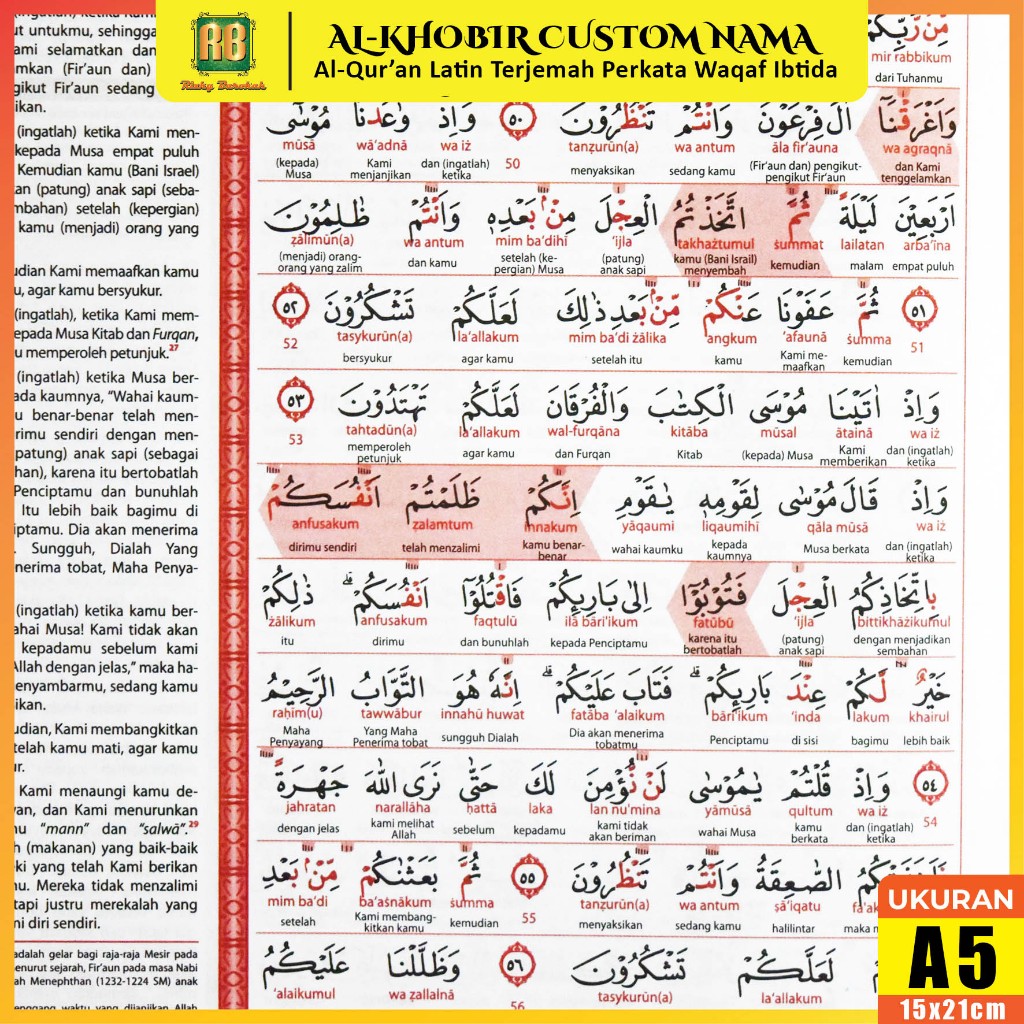 RB
Rizky Barokah
AL-KHOBIR CUSTOM NAMA
Al-Qur’an Latin Terjemah Perkata Waqaf Ibtida
ut untukmu, sehingga
ami selamatkan dan
mkan (Fir'aun dan)
gikut Fir'aun sedang
ikan.
(ingatlah) ketika Kami men-
kepada Musa empat puluh
Kemudian kamu (Bani Israel)
an (patung) anak sapi (seba-
mbahan) setelah (kepergian)
kamu (menjadi) orang yang
udian Kami memaafkan kamu
u, agar kamu bersyukur.
(ingatlah), ketika Kami mem-
epada Musa Kitab dan Furqan,
u memperoleh petunjuk.27
(ingatlah) ketika Musa ber-
ada kaumnya, “Wahai kaum-
u benar-benar telah men-
rimu sendiri dengan men-
patung) anak sapi (sebagai
han), karena itu bertobatlah
Penciptamu dan bunuhlah
Itu lebih baik bagimu di
iptamu. Dia akan menerima
. Sungguh, Dialah Yang
nerima tobat, Maha Penya-
(ingatlah) ketika kamu ber-
ahai Musa! Kami tidak akan
kepadamu sebelum kami
Allah dengan jelas,” maka ha-
enyambarmu, sedang kamu
ikan.
udian, Kami membangkitkan
telah kamu mati, agar kamu
ur.
Kami menaungi kamu de-
van, dan Kami menurunkan
u “mann” dan “salwā”.29
h (makanan) yang baik-baik
ki yang telah Kami berikan
u. Mereka tidak menzalimi
tapi justru merekalah yang
ni diri sendiri.
adalah gelar bagi raja-raja Mesir pada
enurut sejarah, Fir'aun pada masa Nabi
ah Menephthan (1232-1224 SM) anak
مِّنْ رَّبِّكُمْ
mir rabbikum
dari Tuhanmu
وَاَغْرَقْنَآ اٰلَ فِرْعَوْنَ وَاَنْتُمْ تَنْظُرُوْنَ ٥٠ وَاِذْ وٰعَدْنَا مُوْسٰٓى
wa agraqnā āla fir'auna wa antum tanẓurūn(a) 50 wa iż wā'adnā mūsā
dan Kami tenggelamkan (Fir'aun dan) pengikut-pengikut Fir'aun sedang kamu menyaksikan dan (ingatlah) ketika Kami menjanjikan (kepada) Musa
اَرْبَعِيْنَ لَيْلَةً ثُمَّ اتَّخَذْتُمُ الْعِجْلَ مِنْۢ بَعْدِهٖ وَاَنْتُمْ ظٰلِمُوْنَ
arba'īna lailatan ṡummat takhażtumul 'ijla mim ba'dihī wa antum ẓālimūn(a)
empat puluh malam kemudian kamu (Bani Israil) menyembah (patung) anak sapi setelah (ke-pergian) Musa dan kamu (menjadi) orang-orang yang zalim
٥١ ثُمَّ عَفَوْنَا عَنْكُمْ مِّنْۢ بَعْدِ ذٰلِكَ لَعَلَّكُمْ تَشْكُرُوْنَ ٥٢
51 ṡumma 'afaunā angkum mim ba'di żālika la'allakum tasykurūn(a) 52
kemudian Kami me-maafkan kamu setelah itu agar kamu bersyukur
وَاِذْ اٰتَيْنَا مُوْسَى الْكِتٰبَ وَالْفُرْقَانَ لَعَلَّكُمْ تَهْتَدُوْنَ ٥٣
wa iż ātainā mūsal kitāba wal-furqāna la'allakum tahtadūn(a) 53
dan (ingatlah) ketika Kami memberikan (kepada) Musa Kitab dan Furqan agar kamu memperoleh petunjuk
وَاِذْ قَالَ مُوْسٰى لِقَوْمِهٖ يٰقَوْمِ اِنَّكُمْ ظَلَمْتُمْ اَنْفُسَكُمْ
wa iż qāla mūsā liqaumihī yāqaumi innakum ẓalamtum anfusakum
dan (ingatlah) ketika Musa berkata kepada kaumnya wahai kaumku kamu benar-benar telah menzalimi dirimu sendiri
بِاتِّخَاذِكُمُ الْعِجْلَ فَتُوْبُوْٓا اِلٰى بَارِىِٕكُمْ فَاقْتُلُوْٓا اَنْفُسَكُمْۗ ذٰلِكُمْ
bittikhāżikumul 'ijla fatūbū ilā bāri'ikum faqtulū anfusakum żālikum
dengan menjadikan sembahan (patung) anak sapi karena itu bertobatlah kepada Penciptamu dan bunuhlah dirimu itu
خَيْرٌ لَّكُمْ عِنْدَ بَارِىِٕكُمْۗ فَتَابَ عَلَيْكُمْۗ اِنَّهٗ هُوَ التَّوَّابُ الرَّحِيْمُ
khairul lakum 'inda bāri'ikum fatāba 'alaikum innahū huwat tawwābur raḥīm(u)
lebih baik bagimu di sisi Penciptamu Dia akan menerima tobatmu sungguh Dialah Yang Maha Penerima tobat Maha Penyayang
٥٤ وَاِذْ قُلْتُمْ يٰمُوْسٰى لَنْ نُّؤْمِنَ لَكَ حَتّٰى نَرَى اللّٰهَ جَهْرَةً
54 wa iż qultum yāmūsā lan nu'mina laka ḥattā narallāha jahratan
dan (ingatlah) ketika kamu berkata wahai Musa kami tidak akan beriman kepadamu sebelum kami melihat Allah dengan jelas
الصّٰعِقَةُ وَاَنْتُمْ تَنْظُرُوْنَ ٥٥ ثُمَّ بَعَثْنٰكُمْ مِّنْۢ بَعْدِ
ṣā'iqatu wa antum tanẓurūn(a) 55 ṡumma ba'aṡnākum mim ba'di
halilintar sedang kamu menyaksikan kemudian Kami membang-kitkan kamu setelah
لَعَلَّكُمْ تَشْكُرُوْنَ ٥٦ وَظَلَّلْنَا عَلَيْكُمُ
la'allakum tasykurūn(a) 56 wa ẓallalnā 'alaikumul
UKURAN
A5
15x21cm